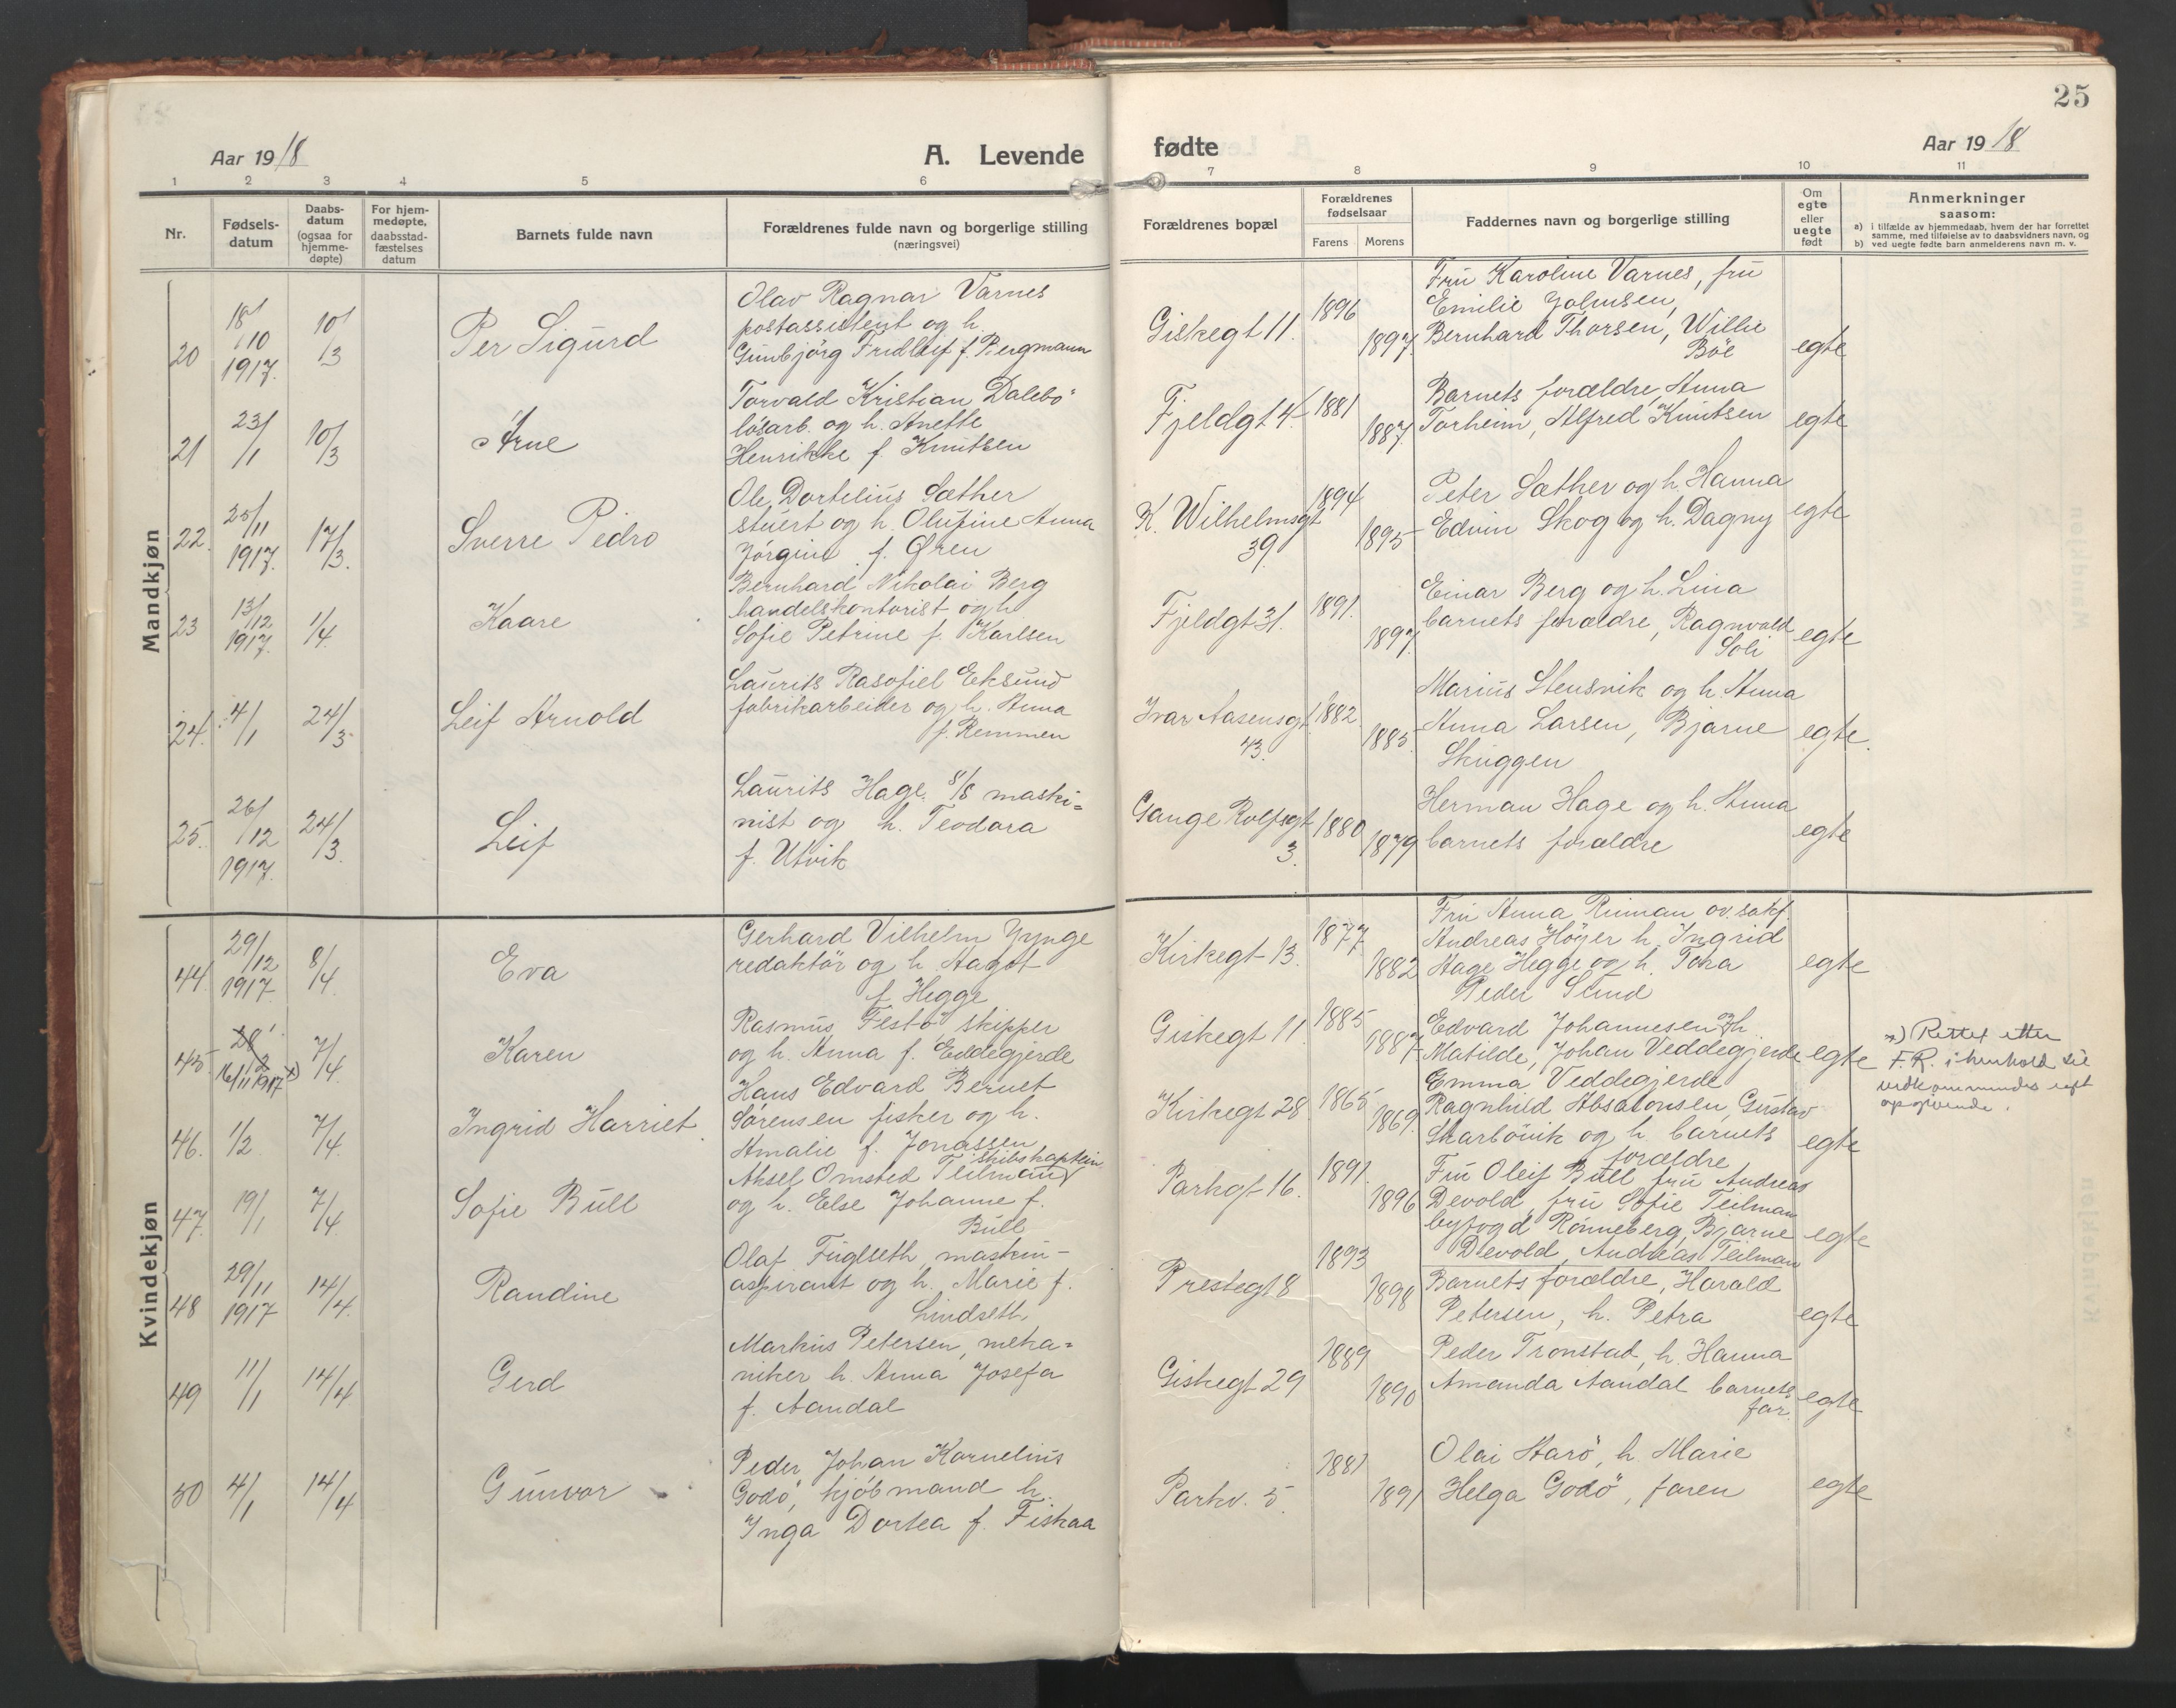 25
Aar 1918
A. Levende
fødte
Aar 1918
1 2 3 4 5 6 7 8 9 10 11
Nr.
Fødsels-
datum
Daabs-
datum
(ogsaa for
hjemme-
døpte)
For hjem-
medøpte,
daabsstad-
fæstelses
datum
Barnets fulde navn
Forældrenes fulde navn og borgerlige stilling
(næringsvei)
Forældrenes bopæl
Forældrenes
fødselsaar
Farens Morens
Faddernes navn og borgerlige stilling
Om
egte
eller
uegte
født
Anmerkninger
saasom:
a) i tilfælde av hjemmedaab, hvem der har forrettet
samme, med tilføielse av to daabsvidners navn, og
b) ved uegte fødte barn anmelderens navn m. v.
Mandkjøn
20
18/
/10
1917.
10/
/3
Per Sigurd
Olav Ragnar Varnes
postassistent og h.
Gunbjörg Fridleif f. Bergmann
Giskegt 11.
1896
1897.
Fru Karoline Varnes, fru
Emilie Johnsen,
Bernhard Thorsen, Willie
Böe
egte
21
23/
/1
10/
/3
Arne
Torvald Kristian Dalebö
lösarb. og h. Anette
Henrikke f. Knutsen
Fjeldgt 4.
1881
1887.
Barnets forældre, Anna
Torheim, Alfred Knutsen
egte
22.
25/11
1917.
17/
/3.
Sverre Pedro
Ole Dortelius Sæther
stuert og h. Olufine Anna
Jörgine f. Øren
K. Wilhelmsgt
39
1894
1895
Peter Sæther og h. Hanna
Edvin Skog og h. Dagny
egte
23
13/12
1917.
1/
/4.
Kaare
Bernhard Nikolai Berg
handelskontorist og h
Sofie Petrine f. Karlsen
Fjeldgt 31.
1891.
1897.
Einar Berg og h. Lina
barnets forældre, Ragnvald
Soli
egte
24.
4/
/1
24/
/3
Leif Arnold
Laurits Rasofiel Eksund
fabrikarbeider og h. Anna
f. Remmen
Ivar Aasensgt
43.
1882.
1885.
Marius Stensvik og h Anna
Anna Larsen, Bjarne
Skuggen
egte.
25.
26/
/12
1917.
24/
/3.
Leif
Laurits Hage. s/s maski-
nist og h. Teodora
f. Utvik
Gange Rolfsgt
3.
1880
1879
Herman Hage og h. Anna
barnets forældre
egte
Kvindekjøn
44.
29/
/12
1917.
8/
/4.
Eva
Gerhard Vilhelm Jynge
redaktör og h. Aagot
f. Hegge
Kirkegt 13.
1877
1882
Fru Anna Riiman ov.sakf.
Andreas Höyer h. Ingrid
Aage Hegge og h. Tora
Peder Sund
egte
45.
28/
/2
16/11 1917 x)
7/
/4.
Karen
Rasmus Festö skipper
og h. Anna f. Eidegjerde
Giskegt 11.
1885
1887
Edvard Johannesen h
Matilde, Johan Veddegjerde
Emma Veddegjerde
egte
x) Rettet etter
F. R. i henhold til
vedkommendes egt
opgivende.
46.
1/2
7/
/4.
Ingrid Harriet.
Hans Edvard Bernet
Sørensen fisker og h.
Amalie f. Jonassen
Kirkegt 28
1865
1869.
Ragnhild Absalonsen, Gustav
Skarbövik og h. barnets
forældre
egte
47.
19/
/1
7/
/4
Sofie Bull
Aksel Omsted Teilmann skibskaptein
og h. Else Johanne f.
Bull
Parkgt 16.
1891.
1896
Fru Oleif Bull fru Andreas
Devold, fru Sofie Teilman
byfogd Rönneberg, Bjarne
Devold, Andreas Teilman
egte
48
29/11
1917
14/
/4.
Randine
Olaf Fuglseth, maskin-
aspirant og h. Marie f.
Lindseth
Prestegt 8
1893
1898
Barnets forældre, Harald
Petersen, h. Petra
egte
49
11/
/1
14/
/4
Gerd
Markus Petersen, meka-
niker h. Anna Josefa
f. Aandal
Giskegt 29
1889
1890
Peder Tronstad, h. Hanna
Amanda Aandal barnets
far.
egte
50
4/
/1
14/
/4
Gunvor
Peder Johan Kornelius
Godö, kjöbmand h.
Inga Dortea f. Fiskaa
Parkv. 5.
1881
1891
Olai Aarö, h. Marie
Helga Godö, faren
egte